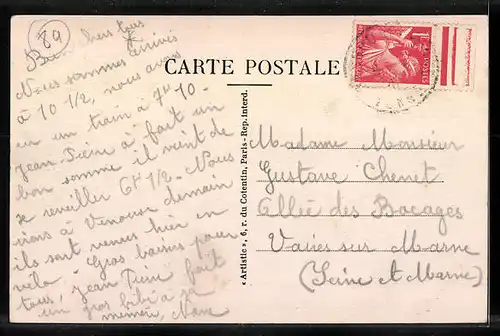 89
Bien chers tous
Nous sommes arrivés
à 10 1/2, nous avons
eu un train à 7h10.
Jean Pierre à fait un
bon somme il vient de
se reveiller 6h 1/2. Nous
irons à Venouse demain
ils sont venus hier en
vélo. Gros baisers pour
tous, Jean Pierre fait
un gros bibi à sa
mémère,
CARTE POSTALE
« Artistic », 6, r. du Cotentin, Paris - Rep. interd.
1F
POSTES
Madame Monsieur
Gustave Chenet
Allée des Bocages
Vaires sur Marne
(Seine et Marne)